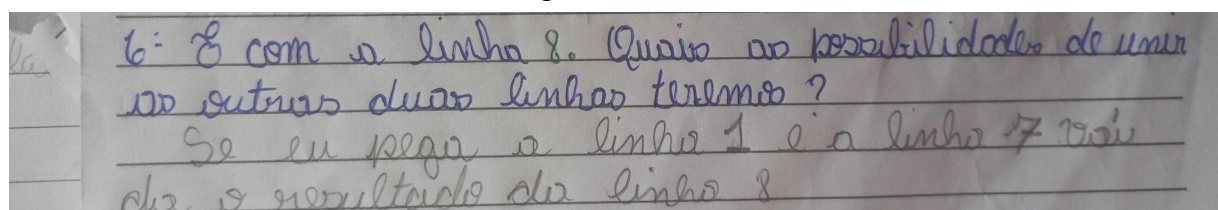 6- E com a linha 8. Quais as possibilidades de unir
as outras duas linhas teremos?
Se eu pega a linha 1 e a linha 7 vai
da o resultado da linha 8